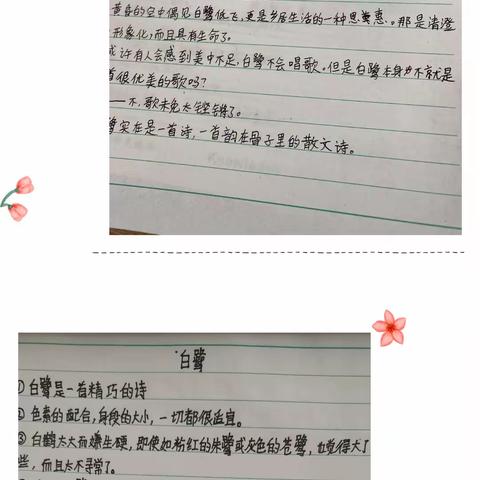 黄昏的空中偶见白鹭低飞,更是乡居生活的一种恩惠。那是清澄
形象化,而且具有生命了。
或许有人会感到美中不足,白鹭不会唱歌。但是白鹭本身不就是
首很优美的歌吗?
——不,歌未免太铿锵了。
鹭实在是一首诗,一首韵在骨子里的散文诗。
白鹭
①白鹭是一首精巧的诗
②色素的配合,身段的大小,一切都很适宜。
③白鹤太大而嫌生硬,即使如粉红的朱鹭或灰色的苍鹭,也觉得大了
些,而且太不寻常了。